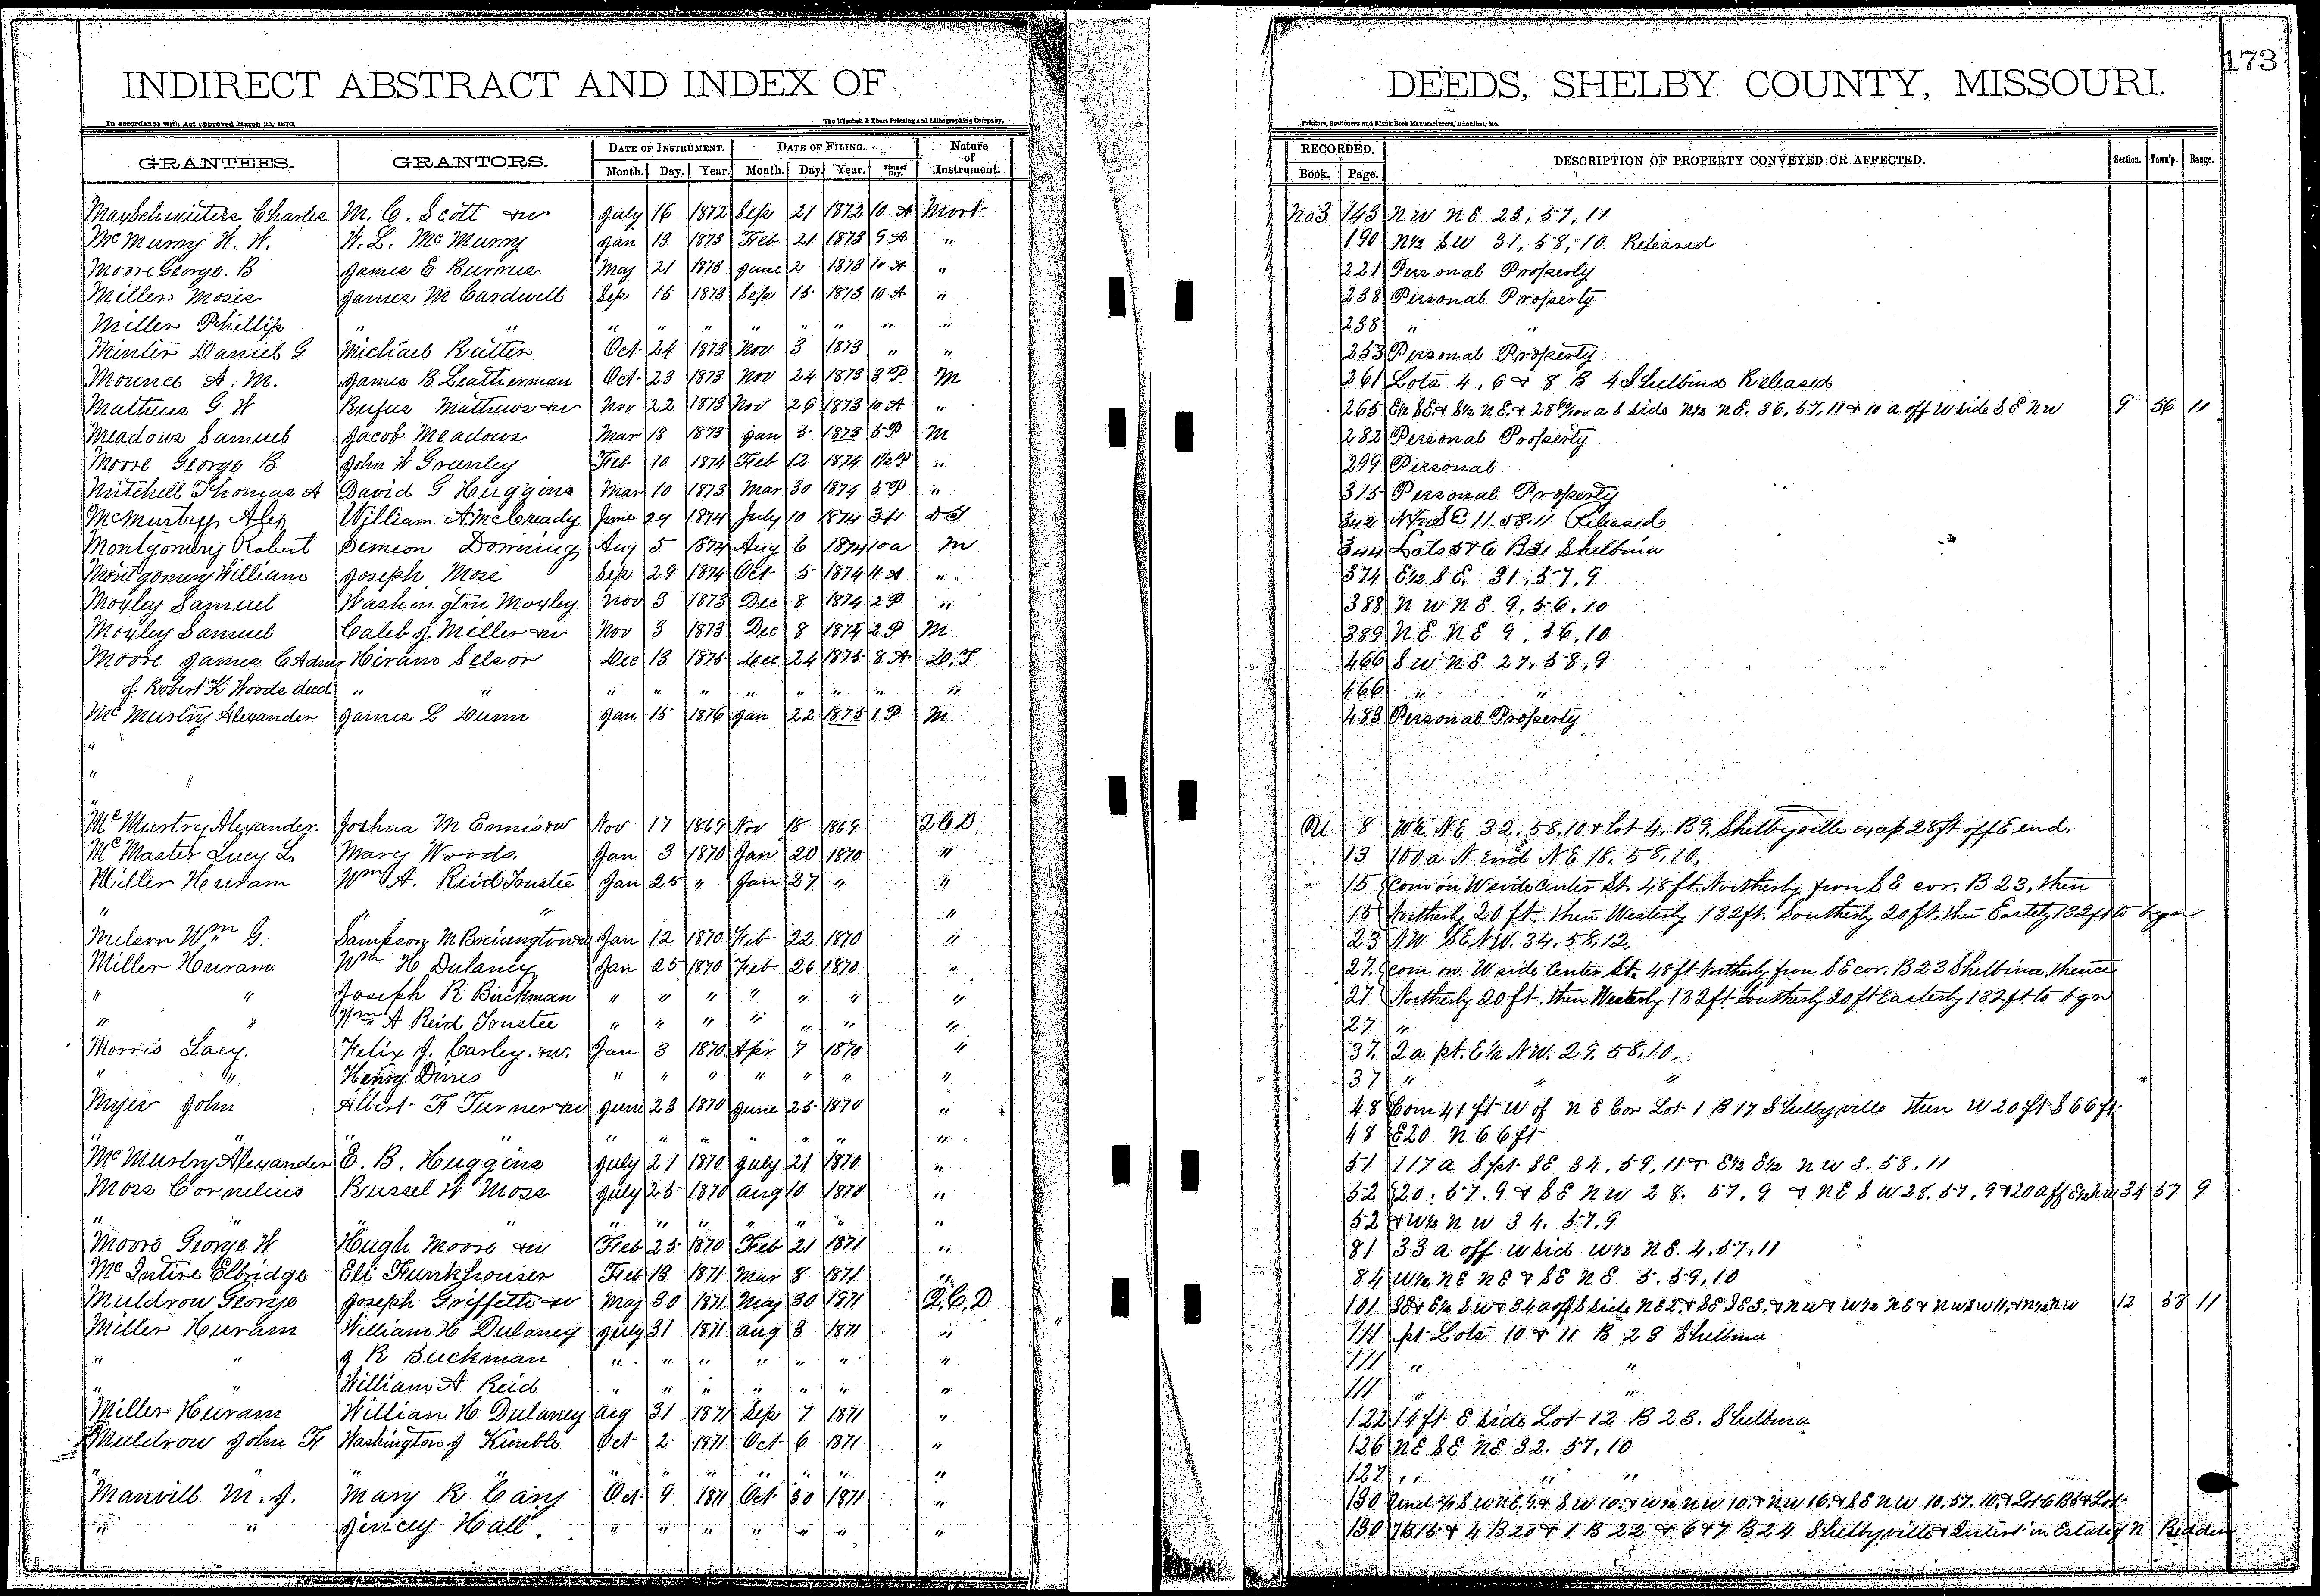 INDIRECT ABSTRACT AND INDEX OF DEEDS, SHELBY COUNTY, MISSOURI. 173
In accordance with Act approved March 25, 1870. The Winchell & Ebert Printing and Lithographing Company, Printers, Stationers and Blank Book Manufacturers, Hannibal, Mo.
GRANTEES. GRANTORS. DATE OF INSTRUMENT. DATE OF FILING. Nature of Instrument. RECORDED. DESCRIPTION OF PROPERTY CONVEYED OR AFFECTED. Section. Town'p. Range.
Month. Day. Year. Month. Day. Year. Time of Day. Book. Page.
Mayschwieters Charles M. C. Scott &w July 16 1872 Sep 21 1872 10 A Mort No 3 143 NW NE 23, 57, 11
McMurry W. W. W. L. McMurry Jan 13 1873 Feb 21 1873 9 A " 190 N½ SW 31, 58, 10 Released
Moore George. B James E Burrus May 21 1873 June 2 1873 10 A " 221 Personal Property
Miller Moses James M Cardwell Sep 15 1873 Sep 15 1873 10 A " 238 Personal Property
Miller Phillip " " " " " " " " " " 238 " "
Minter Daniel G Michael Rutter Oct 24 1873 Nov 3 1873 " " 253 Personal Property
Mounce A. M. James B Leatherman Oct 23 1873 Nov 24 1873 3 P M 261 Lots 4, 6 & 8 B 4 Shelbina Released
Mathews G W Rufus Mathews &w Nov 22 1873 Nov 26 1873 10 A " 265 E½ SE & S½ NE & 28 a S side N½ NE. 36, 57, 11 & 10 a off W side SE NW 9 56 11
Meadows Samuel Jacob Meadows Mar 18 1873 Jan 5 1873 5 P M 282 Personal Property
Moore George B John W Grunley Feb 10 1874 Feb 12 1874 1½ P " 299 Personal
Mitchell Thomas A David G Huggins Mar 10 1873 Mar 30 1874 5 P " 315 Personal Property
McMurtry Alex William A McCready June 29 1874 July 10 1874 3 DT 342 N½ SE 11. 58. 11 Released
Montgomery Robert Simeon Downing Aug 5 1874 Aug 6 1874 10 a M 344 Lots 5 & 6 B 31 Shelbina
Montgomery William Joseph Moss Sep 29 1874 Oct 5 1874 11 A " 374 E½ SE. 31, 57, 9
Moyley Samuel Washington Moyley Nov 3 1873 Dec 8 1874 2 P " 388 NW NE 9. 56. 10
Moyley Samuel Caleb J. Miller &w Nov 3 1873 Dec 8 1874 2 P M 389 NE NE 9. 56. 10
Moore James C Admr Hiram Selsor Dec 13 1875 Dec 24 1875 8 A D. T 466 SW NE 27, 58, 9
of Robert K Woods deed " " " " " " " " " " 466 " "
McMurtry Alexander James L Dunn Jan 15 1876 Jan 22 1875 1 P M 483 Personal Property
"
" "
"
McMurtry Alexander. Joshua M Ennis &w Nov 17 1869 Nov 18 1869 2CD M. 8 W½ NE 32. 58. 10 & lot 4. B 9, Shelbyville excp 28 ft off E end.
McMaster Lucy L. Mary Woods. Jan 3 1870 Jan 20 1870 " 13 100 a N end NE 18. 58. 10.
Miller Huram Wm A. Reid Trustee Jan 25 " Jan 27 " " 15 Com on W side Center St. 48 ft. Northerly from SE cor. B 23, then
" " " " 15 Northerly 20 ft. then Westerly 132 ft. Southerly 20 ft. then Easterly 132 ft to bgn
Melson Wm G. Sampson M Jan 12 1870 Feb 22 1870 " 23 NW SE NW. 34. 58. 12.
Miller Huram Wm H Dulaney Jan 25 1870 Feb 26 1870 " 27. Com on. W side Center St. 48 ft Northerly from SE cor. B 23 Shelbina, thence
" " Joseph R Buckman " " " " " " " 27 Northerly 20 ft. then Westerly 132 ft Southerly 20 ft Easterly 132 ft to bgn
" " Wm A Reid Trustee " " " " " " " 27 "
Morris Lacy. Felix J. Carley. &w. Jan 3 1870 Apr 7 1870 " 37. 2 a pt. E½ NW. 29. 58. 10.
" " Henry Dines " " " " " " " 37 " " "
Myer John Albert F Turner &w June 23 1870 June 25 1870 " 48 Com 41 ft W of NE Cor Lot 1 B 17 Shelbyville then W 20 ft S 66 ft
" " " " " " " " " " " 48 E 20 N 66 ft
McMurtry Alexander E. B. Huggins July 21 1870 July 21 1870 " 51 117 a S pt SE 34, 59, 11 & E½ E½ NW 3. 58. 11
Moss Cornelius Russel W Moss July 25 1870 Aug 10 1870 " 52 20. 57. 9 & SE NW 28. 57. 9 & NE SW 28. 57. 9 & 20 a off E½ NW 34 57 9
" " " " " " " " " 52 & W½ NW 34. 57. 9
Moore George W Hugh Moore &w Feb 25 1870 Feb 21 1871 " 81 33 a off W sid W½ NE. 4. 57. 11
McIntire Elbridge Eli Funkhouser Feb 13 1871 Mar 8 1871 " 84 W½ NE NE & SE NE 5. 59, 10
Muldrow George Joseph Griffith &w May 30 1871 May 30 1871 Q. C. D 101 SE & E½ SW & 34 a off S side NE 2 & SE SE 3. & NW & W½ NE & NW SW 11, & N½ NW 12 58 11
Miller Huram William H Dulaney July 31 1871 Aug 8 1871 " 111 pt Lots 10 & 11 B 23 Shelbina
" " J R Buckman " " " " " " " 111 " "
" " William A Reid " " " " " " " 111 " "
Miller Huram William H Dulaney Aug 31 1871 Sep 7 1871 " 122 14 ft E side Lot 12 B 23. Shelbina
Muldrow John F Washington J Kimble Oct 2 1871 Oct 6 1871 " 126 NE SE NE 32. 57. 10
" " " " " " " " " 127 " " "
Manvill M. J. Mary R Cary Oct 9 1871 Oct 30 1871 " 130 Und SW NE 9. & SW 10. & W½ NW 10. & NW 16. & SE NW 10. 57. 10. & Lot 6 B 5 & Lot
" " Jincey Hall. " " " " " " " 130 7 B 15 & 4 B 20 & 1 B 22 & 6 & 7 B 24 Shelbyville & Interst in Estate of N Redden